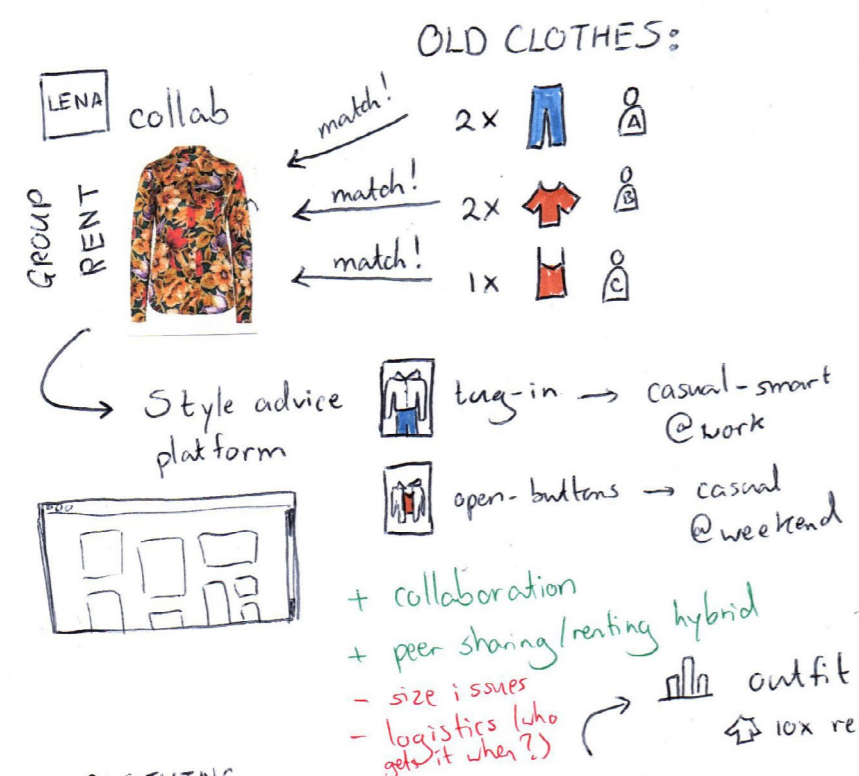 OLD CLOTHES:
LENA
collab
GROUP
RENT
match!
2x
A
match!
2x
B
match!
1x
C
Style advice
platform
tug-in → casual-smart
@work
open-buttons → casual
@weekend
+ collaboration
+ peer sharing/renting hybrid
- size issues
- logistics (who
gets it when?)
outfit
10x re